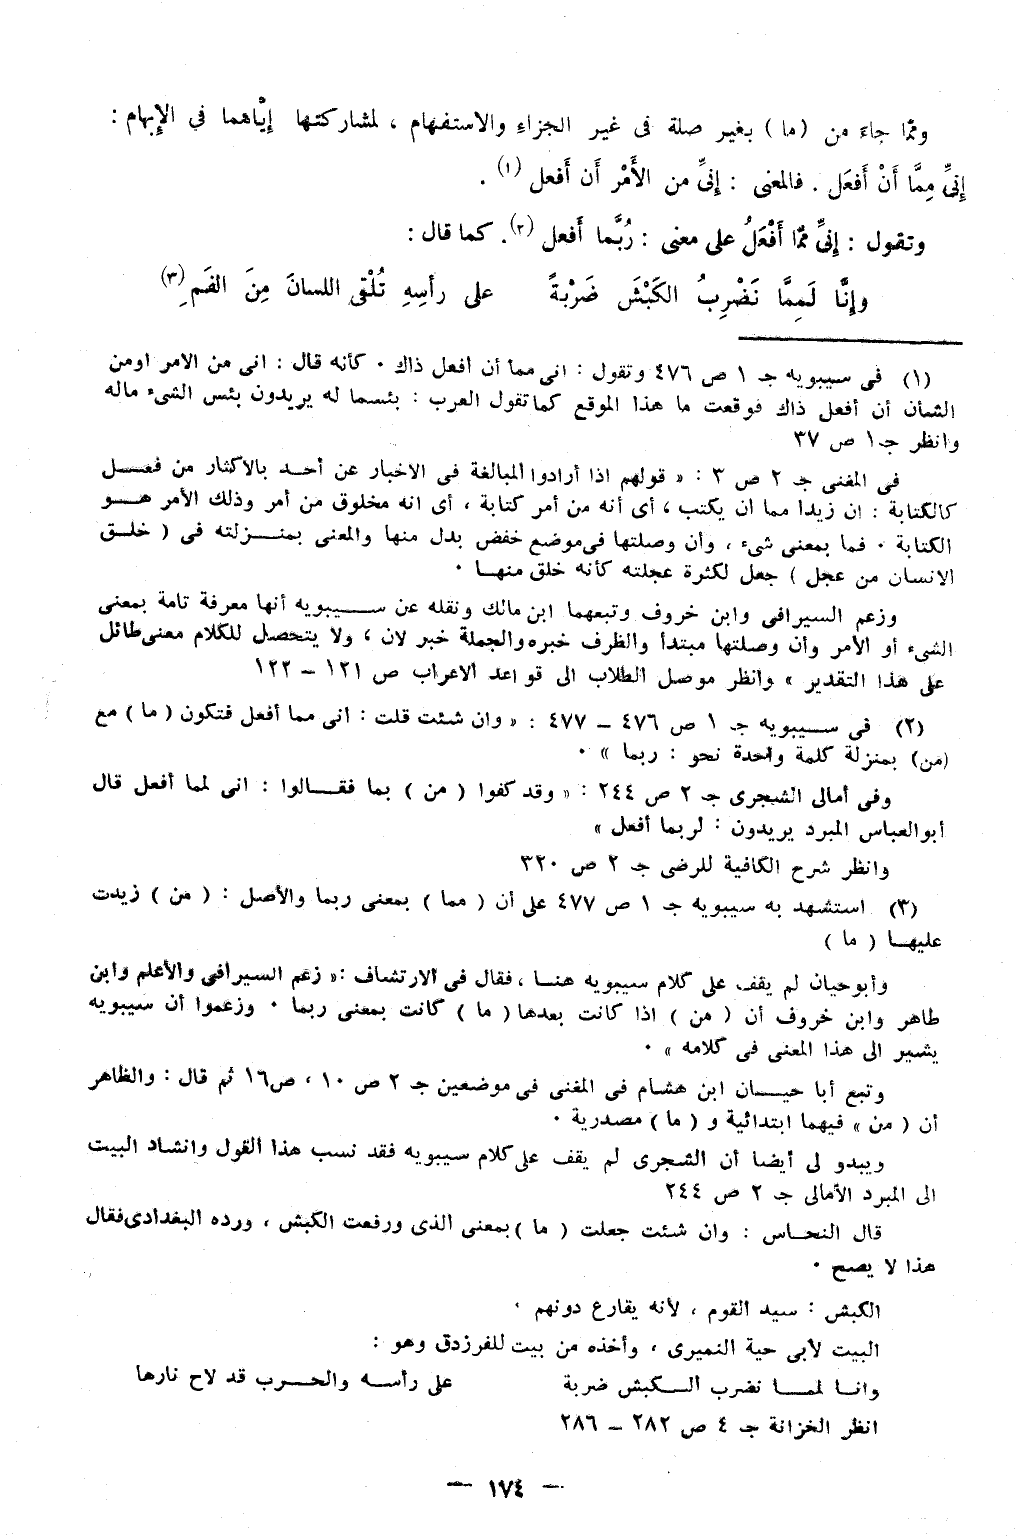 ومّما جاءَ من (ما) بغير صلة فى غير الجزاءِ والاستفهام ، لمشاركتها إِيَّاهما في الإِبهام :
إِنىِّ مِمَّا أَنْ أَفعَل . فالمعنى : إِنىِّ من الأَمْر أَن أَفعل (١) .
وتقول : إِنىِّ ممّا أَفْعَلُ على معنى : رُبَّما أَفعل (٢). كما قال :
وإِنَّا لَمِمَّا نَضْرِبُ الكَبْشَ ضَرْبةً على رأسِهِ تُلْقِى اللسانَ مِنَ الفَمِ (٣)
(١) فى سيبويه جـ ١ ص ٤٧٦ وتقول : انى مما أن أفعل ذاك ٠ كأنه قال : انى من الامر اومن
الشأن أن أفعل ذاك فوقعت ما هذا الموقع كما تقول العرب : بئسما له يريدون بئس الشىء ماله
وانظر جـ١ ص ٣٧
فى المغنى جـ ٢ ص ٣ : « قولهم اذا أرادوا المبالغة فى الاخبار عن أحد بالاكثار من فعـل
كالكتابة : ان زيدا مما ان يكتب ، أى أنه من أمر كتابة ، أى انه مخلوق من أمر وذلك الأمر هـو
الكتابة ٠ فما بمعنى شىء ، وأن وصلتها فى موضع خفض بدل منها والمعنى بمنـزلته فى ( خلـق
الانسان من عجل ) جعل لكثرة عجلته كأنه خلق منهـا ٠
وزعم السيرافى وابن خروف وتبعهما ابن مالك ونقله عن سـيبويه أنها معرفة تامة بمعنى
الشىء أو الأمر وأن وصلتها مبتدأ والظرف خبره والجملة خبر لان ، ولا يتحصل للكلام معنى طائل
على هذا التقدير » وانظر موصل الطلاب الى قواعد الاعراب ص ١٢١ – ١٢٢
(٢) فى سـيبويه جـ ١ ص ٤٧٦ – ٤٧٧ : « وان شئت قلت : انى مما أفعل فتكون ( ما ) مع
(من) بمنزلة كلمة واحدة نحو : ربما » ٠
وفى أمالى الشجرى جـ ٢ ص ٢٤٤ : « وقد كفوا ( من ) بما فقـالوا : انى لمما أفعل قال
أبو العباس المبرد يريدون : لربما أفعل »
وانظر شرح الكافية للرضى جـ ٢ ص ٣٢٠
(٣) استشهد به سيبويه جـ ١ ص ٤٧٧ على أن ( مما ) بمعنى ربما والأصل : ( من ) زيدت
عليهـا ( ما )
وأبو حيان لم يقف على كلام سيبويه هنـا ، فقال فى الارتشاف :« زعم السيرافى والأعلم وابن
طاهر وابن خروف أن ( من ) اذا كانت بعدها ( ما ) كانت بمعنى ربما ٠ وزعموا أن سيبويه
يشير الى هذا المعنى فى كلامه » ٠
وتبع أبا حيـان ابن هشام فى المغنى فى موضعين جـ ٢ ص ١٠ ، ص١٦ ثم قال : والظاهر
أن ( من » فيهما ابتدائية و ( ما ) مصدرية ٠
ويبدو لى أيضا أن الشجرى لم يقف على كلام سيبويه فقد نسب هذا القول وانشاد البيت
الى المبرد الأمالى جـ ٢ ص ٢٤٤
قال النحـاس : وان شئت جعلت ( ما ) بمعنى الذى ورفعت الكبش ، ورده البغدادى فقال
هذا لا يصح ٠
الكبش : سيد القوم ، لأنه يقارع دونهم ٠
البيت لأبى حية النميرى ، وأخذه من بيت للفرزدق وهو :
وانـا لممـا نضرب الـكبش ضربة على رأسـه والحـرب قد لاح نارها
انظر الخزانة جـ ٤ ص ٢٨٢ – ٢٨٦
— ١٧٤ —